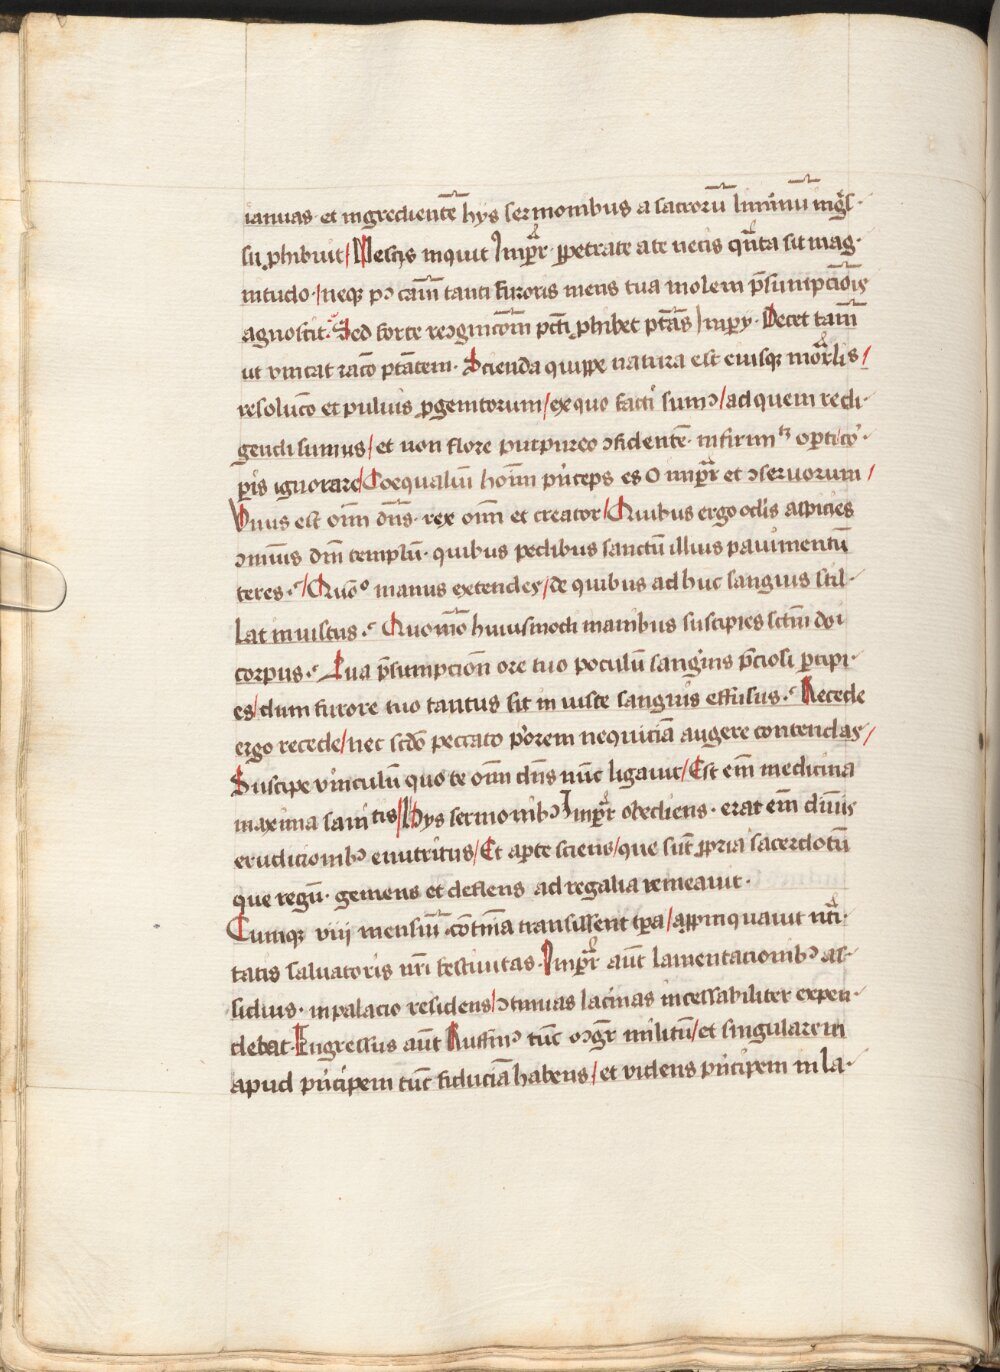 ianuas et ingrediente͞ hys sermonibus a sacroru͞ liminu͞ ingͥs·
su ꝓhibuit/ Nescis inquit Imꝑͣr ꝑpetrate a te necis quͣnta sit mag·
nitudo·/neqꝫ pꝰ caͫ tanti furoris mens tua molem p̄sumpcio͞is
agnoscit· Sed forte recꝯgnico͞m pcͨti ꝓhibet ptͣas Impery· Decet tam͞
ut vincat racͦ ptͣatem· Scienda quippe natura est eiusqꝫ moͬlis/
resolucͦ et puluis ꝓgenitorum/ex quo facti sumꝰ/ad quem redi·
gendi sumus/et non flore purpureo ꝯfidente͞· infirmͭꝫ operti coͬ·
ꝑis ignorare/Coequaliu͞ hoi͞m p͛nceps es O imꝑͣr et ꝯseruorum/
Vnus est oi͞m dn͞s· rex oi͞m et creator/Quibus ergo oclis aspicies
ꝯmu͞is dn͞i templu͞· quibus pedibus sanctu͞ illius pauimentu͞
teres·/Quo͞ᵒ manus extendes/de quibus adhuc sanguis stil·
lat iniustus· Quomo͞ huiusmodi manibus suscipies sctm͞ dni
corpus· Qua p̄sumpcion͞ ore tuo poculu͞ sanguis p̄ciosi ꝑcipi·
es/dum furore tuo tantus sit iniuste sanguis effusus· Recede
ergo recede/nec scdo͞ peccato p͛orem nequicia͞ augere contendas/
Suscipe vinculu͞ quo te oi͞m dn͞s nu͞c ligauit/Est em͞ medicina
maxima sanitis/Hys sermonibꝰ Imꝑͣr obediens· erat em͞ diui͞s
erudicionibꝰ enutritus/Et aꝑte sciens/que su͞t ꝓpria sacerdotu͞
que regu͞· gemens et deflens ad regalia remeauit·
Cumqꝫ viij mensiu͞· co͞tin͞a transissent tp͞a/appinquauit nͣti·
tatis saluatoris nr͞i festiuitas· Imꝑͣr aut͞ lamentacionibꝰ as·
sidius· in palacio residens/ꝯtinuas lacͥmas incessabiliter expen·
debat· Ingressus aut͞ Ruffinꝰ tu͞c mgr͞ militu͞/et singularem
apud p͛ncipem tu͞c fiducia͞ habens/et videns p͛ncipem in la·